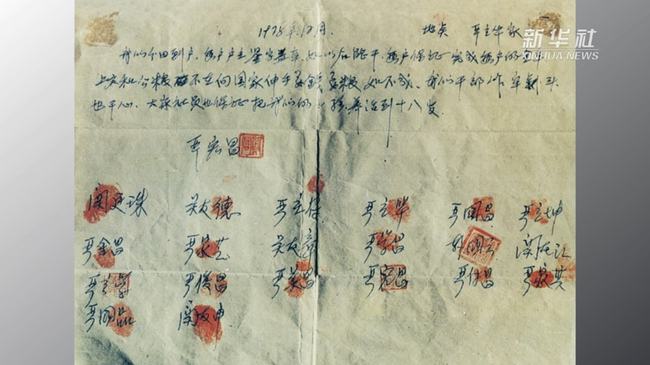 新华社
XINHUA NEWS
1978年12月. 地点 严立华家
我们分田到户,每户户主签字盖章,如以后能干,每户保证完成每户的
上交和公粮 不在向国家伸手要钱要粮,如不成,我们干部作牢刹头
也干心,大家社员也保证把我们的小孩养活到十八岁.
严宏昌
关廷珠 关友德 严立符 严立华 严国昌 严立坤
严金昌 严家芝 关友章 严学昌 韩国云 关友江
严立学 严俊昌 严美昌 严宏昌 严付昌 严家其
严国品 关友申